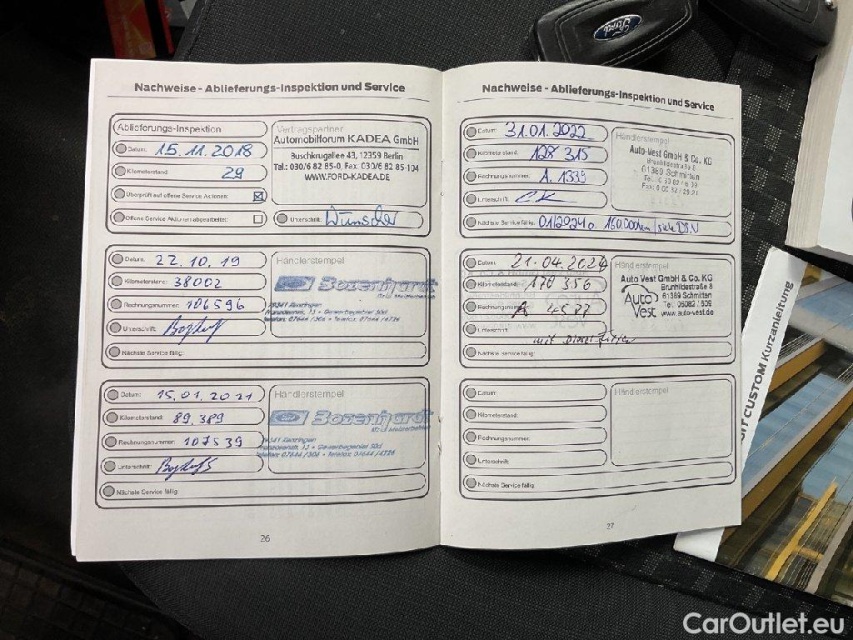 Ford
Nachweise - Ablieferungs-Inspektion und Service
Ablieferungs-Inspektion
Datum: 15.11.2018
Kilometerstand: 29
Überprüft auf offene Service Aktionen:
Offene Service Aktionen abgearbeitet:
Vertragspartner
Automobilforum KADEA GmbH
Buschkrugallee 43, 12359 Berlin
Tel.: 030/6 82 85-0, Fax: 030/6 82 85-104
WWW.FORD-KADEA.DE
Unterschrift:
Datum: 22.10.19
Kilometerstand: 38002
Rechnungsnummer: 106596
Unterschrift:
Nächste Service fällig:
Händlerstempel
Bozenhardt
Datum: 15.01.2021
Kilometerstand: 89.389
Rechnungsnummer: 107539
Unterschrift:
Nächste Service fällig:
Händlerstempel
Bozenhardt
26
Nachweise - Ablieferungs-Inspektion und Service
Datum: 31.01.2022
Kilometerstand: 128 315
Rechnungsnummer: A. 1339
Unterschrift:
Nächste Service fällig: 01/2024 o. 160.000km
Händlerstempel
Auto-Vest GmbH & Co. KG
Brunhildestraße 8
61389 Schmitten
Datum: 21.04.2024
Kilometerstand: 170 356
Rechnungsnummer: A 4587
Unterschrift:
mit
Nächste Service fällig:
Händlerstempel
Auto Vest GmbH & Co. KG
Brunhildestraße 8
61389 Schmitten
Tel. 06082 / 609
www.auto-vest.de
Auto
Vest
Datum:
Kilometerstand:
Rechnungsnummer:
Unterschrift:
Nächste Service fällig:
Händlerstempel
27
CUSTOM Kurzanleitung
CarOutlet.eu